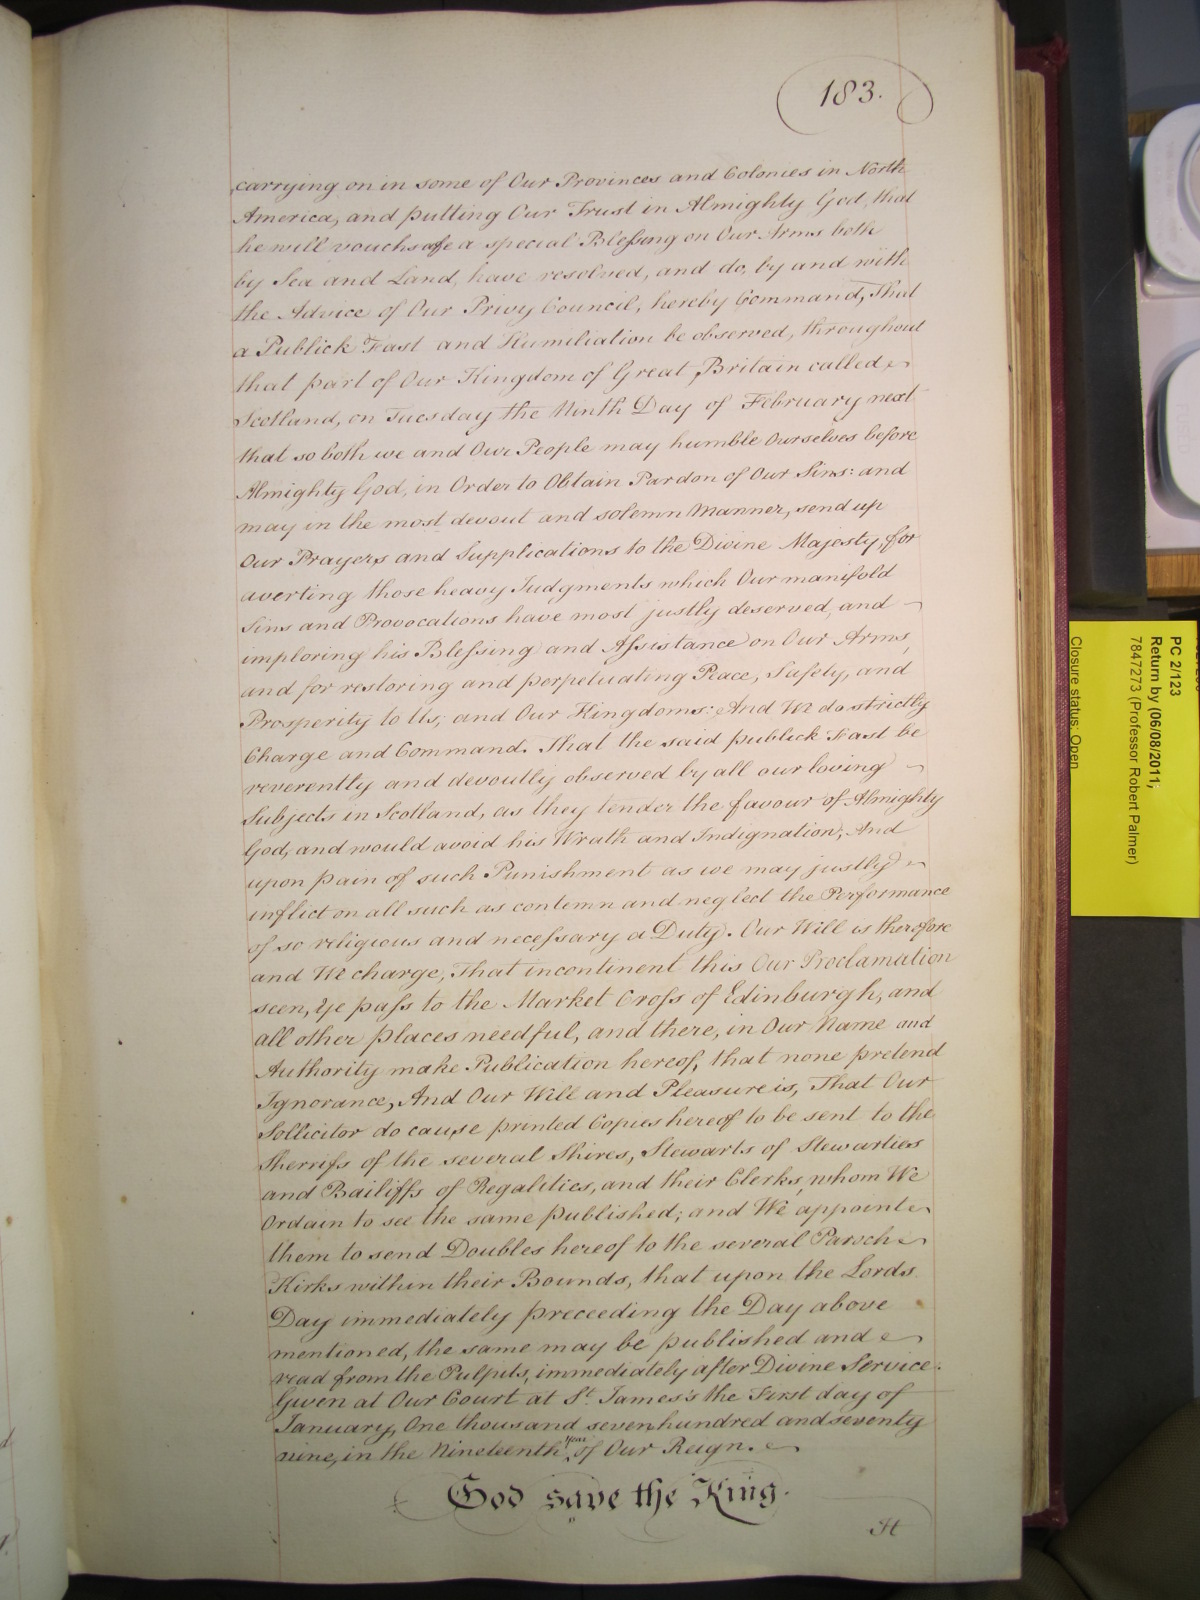 183.
carrying on in some of Our Provinces and Colonies in North
America, and putting Our Trust in Almighty God, that
he will vouchsafe a special Blessing on Our Arms both
by Sea and Land, have resolved, and do, by and with
the Advice of Our Privy Council, hereby Command, That
a Publick Fast and Humiliation be observed, throughout
that part of Our Kingdom of Great Britain called
Scotland, on Tuesday the Ninth Day of February next
that so both we and Our People may humble Ourselves before
Almighty God, in Order to Obtain Pardon of Our Sins: and
may in the most devout and solemn Manner, send up
Our Prayers and Supplications to the Divine Majesty, for
averting those heavy Judgments which Our manifold
Sins and Provocations have most justly deserved, and
imploring his Blessing and Assistance on Our Arms,
and for restoring and perpetuating Peace, Safety, and
Prosperity to Us, and Our Kingdoms: And We do strictly
Charge and Command. That the said publick Fast be
reverently and devoutly observed by all our loving
Subjects in Scotland, as they tender the favour of Almighty
God, and would avoid his Wrath and Indignation, And
upon pain of such Punishment as we may justly
inflict on all such as contemn and neglect the Performance
of so religious and necessary a Duty. Our Will is therefore
and We charge, That incontinent this Our Proclamation
seen, Ye pass to the Market Cross of Edinburgh, and
all other places needful, and there, in Our Name and
Authority make Publication hereof, that none pretend
Ignorance, And Our Will and Pleasure is, That Our
Sollicitor do cause printed Copies hereof to be sent to the
Sherrifs of the several Shires, Stewarts of Stewarties
and Bailiffs of Regalities, and their Clerks, whom We
Ordain to see the same published; and We appoint
them to send Doubles hereof to the several Paroch
Kirks within their Bounds, that upon the Lords
Day immediately preceeding the Day above
mentioned, the same may be published and
read from the Pulpits, immediately after Divine Service.
Given at Our Court at St. James's the First day of
January, One thousand seven hundred and seventy
nine, in the Nineteenth Year of Our Reign.
God save the King.
At
PC 2/123
Return by (06/08/2011;
7847273 (Professor Robert Palmer)
Closure status: Open